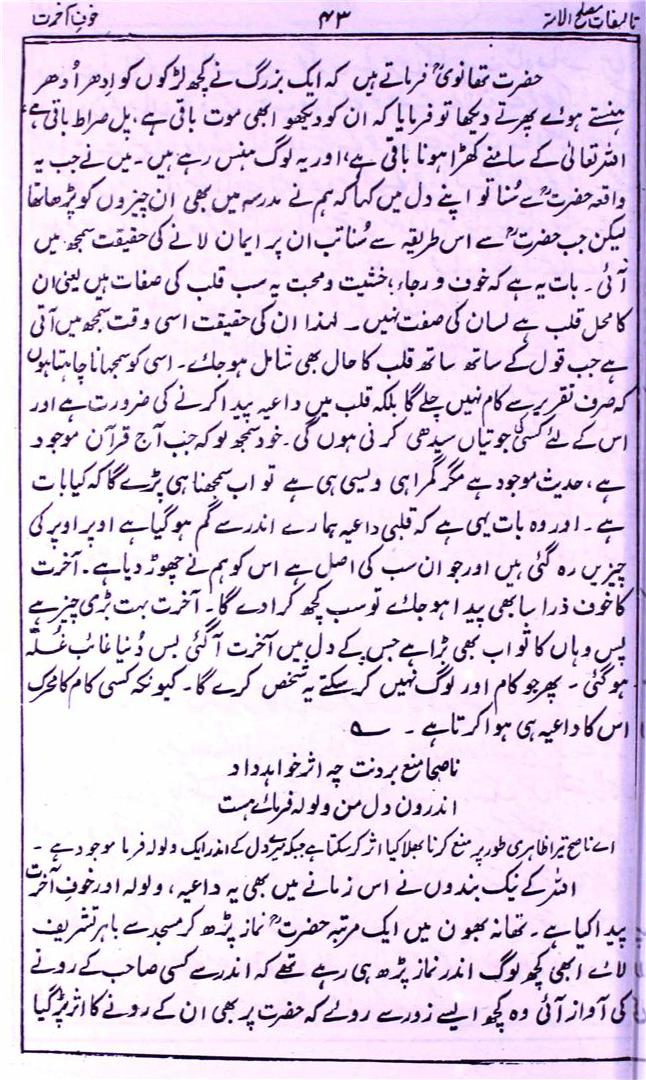 تالیفات مصلح الامۃ ۴۳ خوفِ آخرت
حضرت تھانویؒ فرماتے ہیں کہ ایک بزرگ نے کچھ لڑکوں کو ادھر اُدھر
ہنستے ہوئے پھرتے دیکھا تو فرمایا کہ ان کو دیکھو ابھی موت باقی ہے، پل صراط باقی ہے،
اللہ تعالیٰ کے سامنے کھڑا ہونا باقی ہے، اور یہ لوگ ہنس رہے ہیں۔ میں نے جب یہ
واقعہ حضرتؒ سے سُنا تو اپنے دل میں کہا کہ ہم نے مدرسہ میں بھی ان چیزوں کو پڑھا تھا
لیکن جب حضرتؒ سے اس طریقہ سے سُنا تب ان پر ایمان لانے کی حقیقت سمجھ میں
آئی۔ بات یہ ہے کہ خوف و رجاء، خشیت و محبت یہ سب قلب کی صفات ہیں یعنی ان
کا محل قلب ہے لسان کی صفت نہیں۔ لہٰذا ان کی حقیقت اسی وقت سمجھ میں آتی
ہے جب قول کے ساتھ ساتھ قلب کا حال بھی شامل ہو جائے۔ اسی کو سمجھانا چاہتا ہوں
کہ صرف تقریر سے کام نہیں چلے گا بلکہ قلب میں داعیہ پیدا کرنے کی ضرورت ہے اور
اس کے لئے کسی کی جوتیاں سیدھی کرنی ہوں گی۔ خود سمجھ لو کہ جب آج قرآن موجود
ہے، حدیث موجود ہے مگر گمراہی ویسی ہی ہے تو اب سمجھنا ہی پڑے گا کہ کیا بات
ہے۔ اور وہ بات یہی ہے کہ قلبی داعیہ ہمارے اندر سے گم ہو گیا ہے اوپر اوپر کی
چیزیں رہ گئی ہیں اور جو ان سب کی اصل ہے اس کو ہم نے چھوڑ دیا ہے۔ آخرت
کا خوف ذرا سا بھی پیدا ہو جائے تو سب کچھ کرا دے گا۔ آخرت بہت بڑی چیز ہے
پس وہاں کا تو اب بھی بڑا ہے جس کے دل میں آخرت آگئی بس دُنیا غائب غُلّہ
ہو گئی۔ پھر جو کام اور لوگ نہیں کر سکتے یہ شخص کرے گا۔ کیونکہ کسی کام کا محرک
اس کا داعیہ ہی ہوا کرتا ہے۔ ؎
ناصحا منع بردنت چہ اثر خواہد داد
اندرون دل من ولولہ فرمائے ہست
اے ناصح تیرا ظاہری طور پر منع کرنا بھلا کیا اثر کر سکتا ہے جبکہ میرے دل کے اندر ایک ولولہ فرما موجود ہے۔
اللہ کے نیک بندوں نے اس زمانے میں بھی یہ داعیہ، ولولہ اور خوفِ آخرت
پیدا کیا ہے۔ تھانہ بھون میں ایک مرتبہ حضرتؒ نماز پڑھ کر مسجد سے باہر تشریف
لائے ابھی کچھ لوگ اندر نماز پڑھ ہی رہے تھے کہ اندر سے کسی صاحب کے رونے
کی آواز آئی وہ کچھ ایسے زور سے روئے کہ حضرت پر بھی ان کے رونے کا اثر پڑ گیا